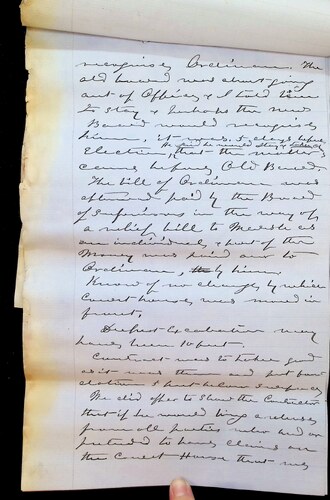 recognise Ordiman. The
old board was about going
out of Office & I told him
to stay, perhaps the new
Board would recognise
him, it was 2 days before
he said he would stay
Election, that the matter
came before Old Board.
The bill of Ordiman was
afterward paid by the Board
of Supervisors in the way of
a relief bill to Meekle as
an individual, & part of the
Money was paid over to
Ordiman, by him.
Know of no change by which
Court house was moved in
front.
Deepest Excavation may
have been 10 feet.
Contract was to take good
as it was there and put
He did offer to Show the Contractor
that if he would bring a release
from all parties who had or
pretend to have claims on
the Court House that we